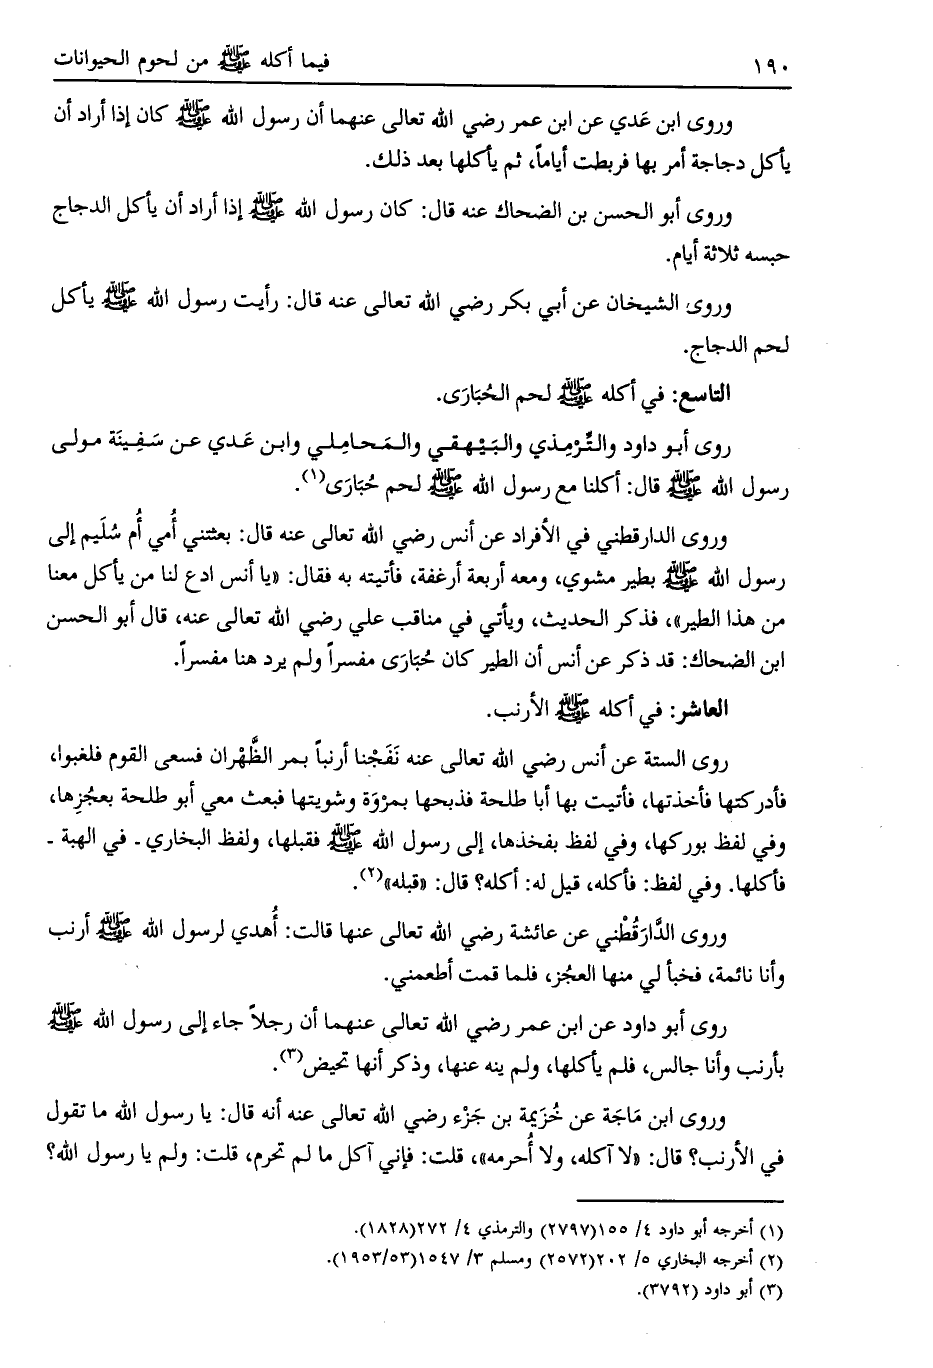 ١٩٠ فيما أكله ﷺ من لحوم الحيوانات
وروى ابن عَدي عن ابن عمر رضي الله تعالى عنهما أن رسول الله ﷺ كان إذا أراد أن
يأكل دجاجة أمر بها فربطت أياماً، ثم يأكلها بعد ذلك.
وروى أبو الحسن بن الضحاك عنه قال: كان رسول الله ﷺ إذا أراد أن يأكل الدجاج
حبسه ثلاثة أيام.
وروى الشيخان عن أبي بكر رضي الله تعالى عنه قال: رأيت رسول الله ﷺ يأكل
لحم الدجاج.
التاسع: في أكله ﷺ لحم الحُبَارَى.
روى أبو داود والتِّرْمِذي والبَيْهقي والمَحاملي وابن عَدي عن سَفِينَة مولى
رسول الله ﷺ قال: أكلنا مع رسول الله ﷺ لحم حُبَارَى(١).
وروى الدارقطني في الأفراد عن أنس رضي الله تعالى عنه قال: بعثتني أُمي أُم سُلَيم إلى
رسول الله ﷺ بطير مشوي، ومعه أربعة أرغفة، فأتيته به فقال: «يا أنس ادع لنا من يأكل معنا
من هذا الطير»، فذكر الحديث، ويأتي في مناقب علي رضي الله تعالى عنه، قال أبو الحسن
ابن الضحاك: قد ذكر عن أنس أن الطير كان حُبَارَى مفسراً ولم يرد هنا مفسراً.
العاشر: في أكله ﷺ الأرنب.
روى الستة عن أنس رضي الله تعالى عنه نَفَجْنا أرنباً بمر الظَّهْران فسعى القوم فلغبوا،
فأدركتها فأخذتها، فأتيت بها أبا طلحة فذبحها بمرْوَة وشويتها فبعث معي أبو طلحة بعجُزِها،
وفي لفظ بوركها، وفي لفظ بفخذها، إلى رسول الله ﷺ فقبلها، ولفظ البخاري ـ في الهبة ـ
فأكلها. وفي لفظ: فأكله، قيل له: أكله؟ قال: «قبله»(٢).
وروى الدَّارَقُطْني عن عائشة رضي الله تعالى عنها قالت: أُهدي لرسول الله ﷺ أرنب
وأنا نائمة، فخبأ لي منها العجُز، فلما قمت أطعمني.
روى أبو داود عن ابن عمر رضي الله تعالى عنهما أن رجلاً جاء إلى رسول الله ﷺ
بأرنب وأنا جالس، فلم يأكلها، ولم ينه عنها، وذكر أنها تحيض(٣).
وروى ابن مَاجَة عن خُزَيمة بن جَزْء رضي الله تعالى عنه أنه قال: يا رسول الله ما تقول
في الأرنب؟ قال: «لا آكله، ولا أُحرمه»، قلت: فإني آكل ما لم تحرم، قلت: ولم يا رسول الله؟
(١) أخرجه أبو داود ٤/ ١٥٥(٢٧٩٧) والترمذي ٤/ ٢٧٢(١٨٢٨).
(٢) أخرجه البخاري ٥/ ٢٠٢(٢٥٧٢) ومسلم ٣/ ١٥٤٧(١٩٥٣/٥٣).
(٣) أبو داود (٣٧٩٢).